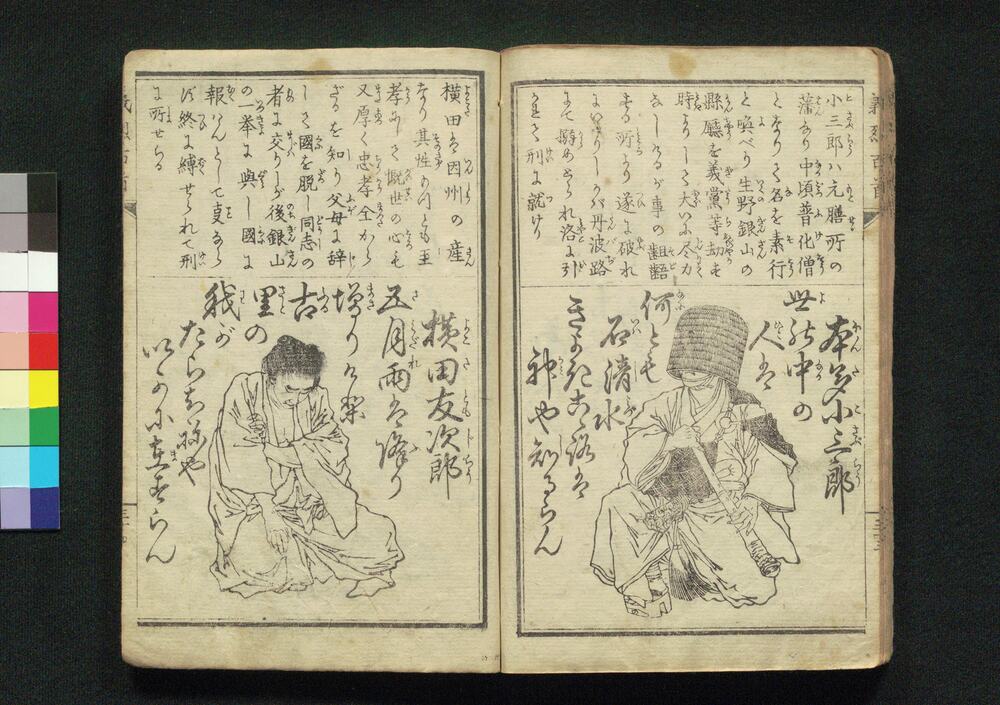 小三郎ハ元膳所の
藩なり中頃普化僧
となりて名を素行
と喚べり生野銀山の
縣廳を義黨等劫も
時よりして大いに尽力
なしゐるが事の齟齬
する所より遂に破れ
にいたりしかバ丹波路
にて擒めとられ洛に引
れて刑に就けり
本多小三郎
世の中の
人は
何とも
石清水
きよきこゝろは
神や知るらん
横田は因州の産
なり其性もつとも至
孝ありて慨世の心も
又厚く忠孝全から
ざるを知り父母に辞
して國を脱し同志の
者に交りしが後銀山
の一挙に與し國に
報いんとして事ならず
終に縛せられて刑
に所せらる
横田友次郎
五月雨は降り
増りけり
古
里の
我が
たらちねや
いかに在すらん
義烈百首